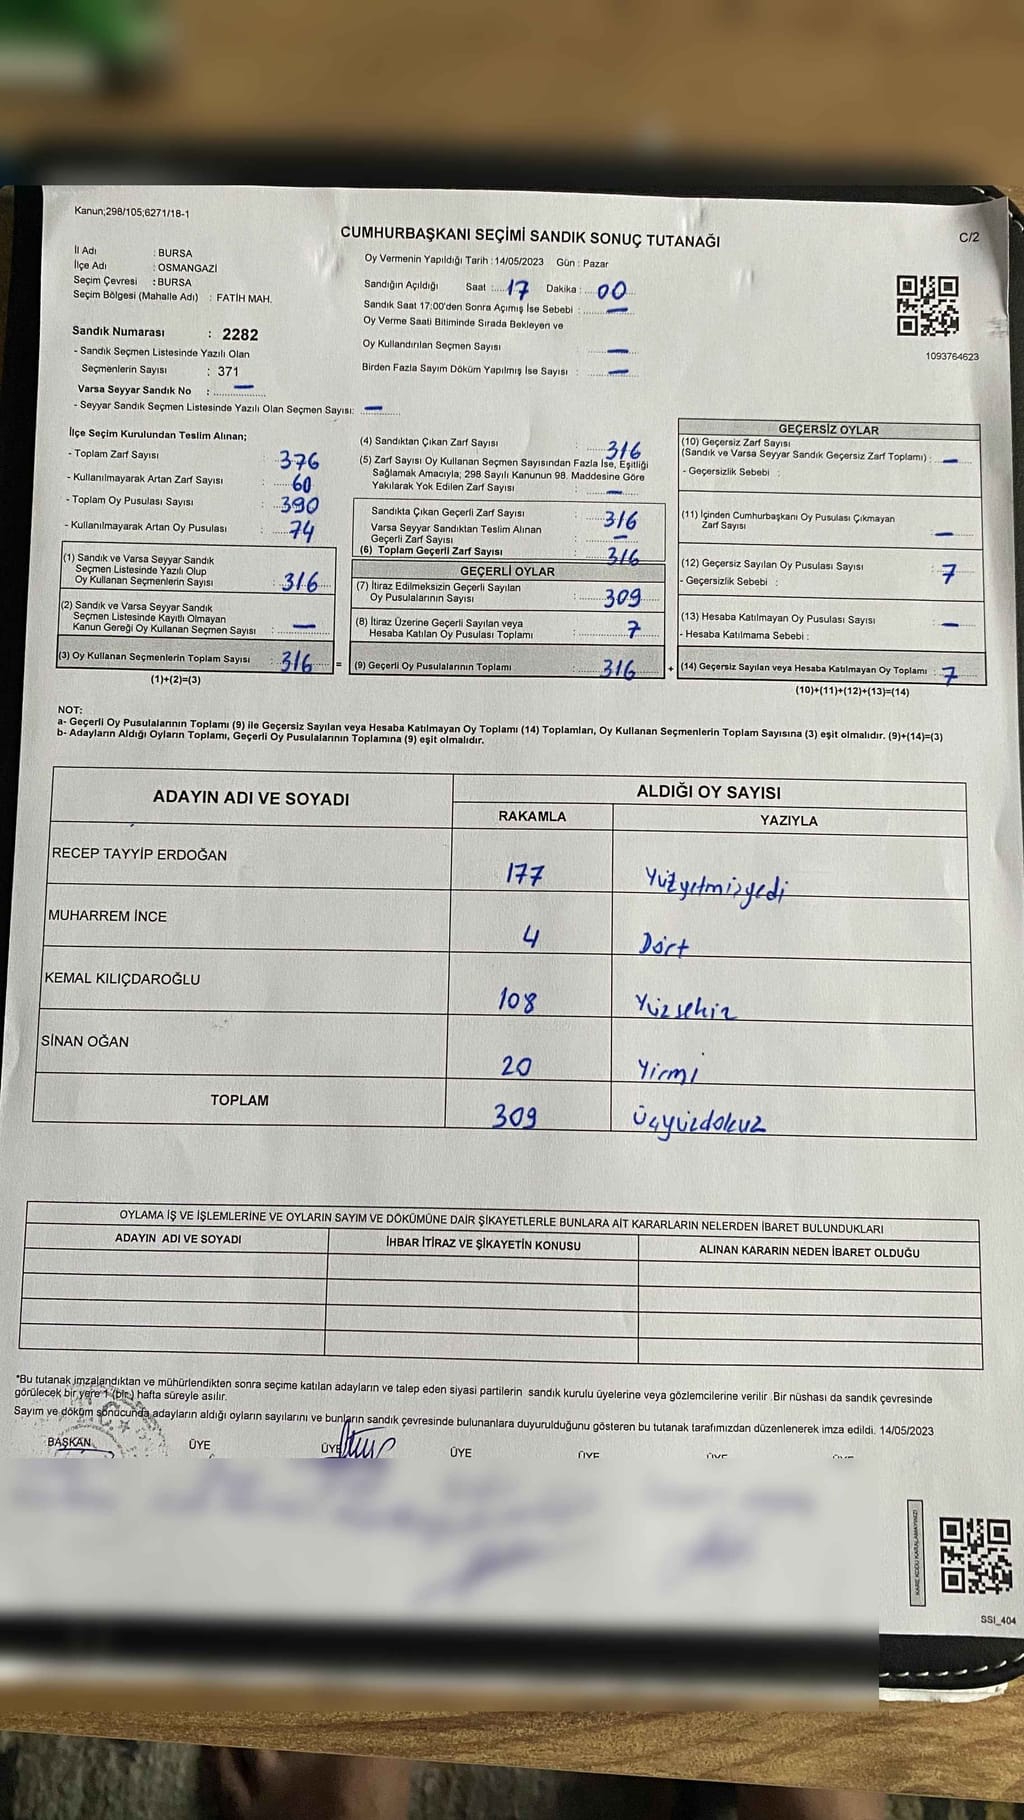 Kanun;298/105;6271/18-1
CUMHURBAŞKANI SEÇİMİ SANDIK SONUÇ TUTANAĞI
C/2
İl Adı : BURSA
İlçe Adı : OSMANGAZİ
Seçim Çevresi : BURSA
Seçim Bölgesi (Mahalle Adı) : FATİH MAH.
Sandık Numarası : 2282
- Sandık Seçmen Listesinde Yazılı Olan
Seçmenlerin Sayısı : 371
Varsa Seyyar Sandık No : —
- Seyyar Sandık Seçmen Listesinde Yazılı Olan Seçmen Sayısı: —
Oy Vermenin Yapıldığı Tarih : 14/05/2023 Gün : Pazar
Sandığın Açıldığı Saat : 17 Dakika : 00
Sandık Saat 17:00'den Sonra Açımış İse Sebebi : —
Oy Verme Saati Bitiminde Sırada Bekleyen ve
Oy Kullandırılan Seçmen Sayısı —
Birden Fazla Sayım Döküm Yapılmış İse Sayısı : —
1093764623
İlçe Seçim Kurulundan Teslim Alınan;
- Toplam Zarf Sayısı : 376
- Kullanılmayarak Artan Zarf Sayısı : 60
- Toplam Oy Pusulası Sayısı : 390
- Kullanılmayarak Artan Oy Pusulası : 74
(1) Sandık ve Varsa Seyyar Sandık
Seçmen Listesinde Yazılı Olup
Oy Kullanan Seçmenlerin Sayısı : 316
(2) Sandık ve Varsa Seyyar Sandık
Seçmen Listesinde Kayıtlı Olmayan
Kanun Gereği Oy Kullanan Seçmen Sayısı : —
(3) Oy Kullanan Seçmenlerin Toplam Sayısı : 316 =
(1)+(2)=(3)
(4) Sandıktan Çıkan Zarf Sayısı : 316
(5) Zarf Sayısı Oy Kullanan Seçmen Sayısından Fazla İse, Eşitliği
Sağlamak Amacıyla; 298 Sayılı Kanunun 98. Maddesine Göre
Yakılarak Yok Edilen Zarf Sayısı : —
Sandıkta Çıkan Geçerli Zarf Sayısı : 316
Varsa Seyyar Sandıktan Teslim Alınan
Geçerli Zarf Sayısı : —
(6) Toplam Geçerli Zarf Sayısı : 316
GEÇERLİ OYLAR
(7) İtiraz Edilmeksizin Geçerli Sayılan
Oy Pusulalarının Sayısı : 309
(8) İtiraz Üzerine Geçerli Sayılan veya
Hesaba Katılan Oy Pusulası Toplamı : 7
(9) Geçerli Oy Pusulalarının Toplamı : 316 +
GEÇERSİZ OYLAR
(10) Geçersiz Zarf Sayısı
(Sandık ve Varsa Seyyar Sandık Geçersiz Zarf Toplamı) : —
- Geçersizlik Sebebi :
(11) İçinden Cumhurbaşkanı Oy Pusulası Çıkmayan
Zarf Sayısı —
(12) Geçersiz Sayılan Oy Pusulası Sayısı 7
- Geçersizlik Sebebi :
(13) Hesaba Katılmayan Oy Pusulası Sayısı : —
- Hesaba Katılmama Sebebi :
(14) Geçersiz Sayılan veya Hesaba Katılmayan Oy Toplamı : 7
(10)+(11)+(12)+(13)=(14)
NOT:
a- Geçerli Oy Pusulalarının Toplamı (9) ile Geçersiz Sayılan veya Hesaba Katılmayan Oy Toplamı (14) Toplamları, Oy Kullanan Seçmenlerin Toplam Sayısına (3) eşit olmalıdır. (9)+(14)=(3)
b- Adayların Aldığı Oyların Toplamı, Geçerli Oy Pusulalarının Toplamına (9) eşit olmalıdır.
ADAYIN ADI VE SOYADI
ALDIĞI OY SAYISI
RAKAMLA YAZIYLA
RECEP TAYYİP ERDOĞAN 177 Yüzyetmişyedi
MUHARREM İNCE 4 Dört
KEMAL KILIÇDAROĞLU 108 Yüzsekiz
SİNAN OĞAN 20 Yirmi
TOPLAM 309 Üçyüzdokuz
OYLAMA İŞ VE İŞLEMLERİNE VE OYLARIN SAYIM VE DÖKÜMÜNE DAİR ŞİKAYETLERLE BUNLARA AİT KARARLARIN NELERDEN İBARET BULUNDUKLARI
ADAYIN ADI VE SOYADI İHBAR İTİRAZ VE ŞİKAYETİN KONUSU ALINAN KARARIN NEDEN İBARET OLDUĞU
*Bu tutanak imzalandıktan ve mühürlendikten sonra seçime katılan adayların ve talep eden siyasi partilerin sandık kurulu üyelerine veya gözlemcilerine verilir .Bir nüshası da sandık çevresinde
görülecek bir yere 1 (bir) hafta süreyle asılır.
Sayım ve döküm sonucunda adayların aldığı oyların sayılarını ve bunların sandık çevresinde bulunanlara duyurulduğunu gösteren bu tutanak tarafımızdan düzenlenerek imza edildi. 14/05/2023
BAŞKAN ÜYE ÜYE ÜYE ÜYE ÜYE ÜYE
KARE KODU KARALAMAYINIZ!
SSI_404